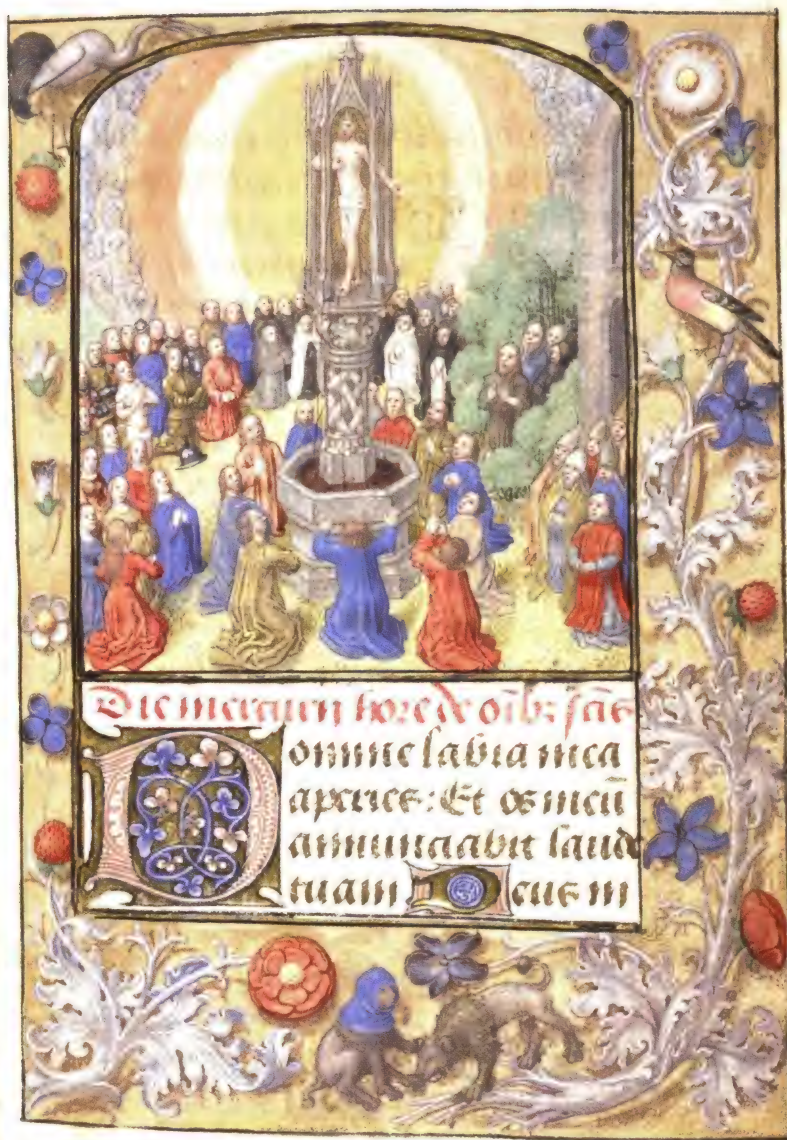 Die mercurii hore de oib; scis
Domine labia mea
aperies: Et os meū
annunciabit laudē
tuam Deus in